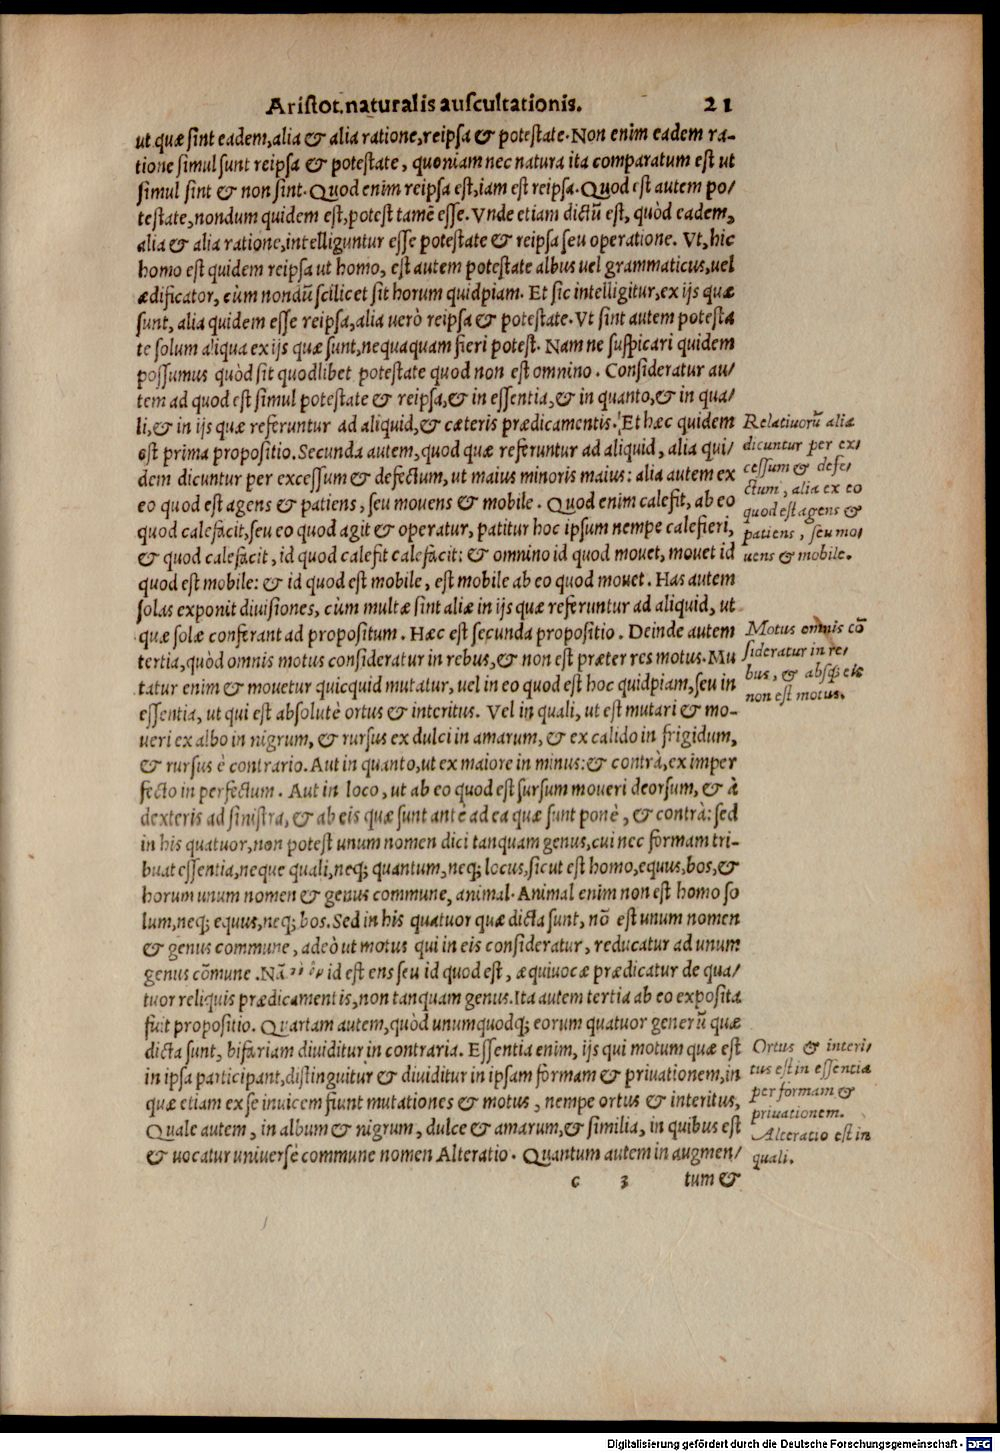 Aristot. naturalis auscultationis. 21
ut quæ sint eadem, alia & alia ratione, reipsa & potestate. Non enim eadem ra-
tione simul sunt reipsa & potestate, quoniam nec natura ita comparatum est ut
simul sint & non sint. Quod enim reipsa est, iam est reipsa. Quod est autem po/
testate, nondum quidem est, potest tamē esse. Vnde etiam dictū est, quòd eadem,
alia & alia ratione, intelliguntur esse potestate & reipsa seu operatione. Vt, hic
homo est quidem reipsa ut homo, est autem potestate albus uel grammaticus, uel
ædificator, cùm nondū scilicet sit horum quidpiam. Et sic intelligitur, ex ijs quæ
sunt, alia quidem esse reipsa, alia uerò reipsa & potestate. Vt sint autem potesta
te solum aliqua ex ijs quæ sunt, nequaquam fieri potest. Nam ne suspicari quidem
possumus quòd sit quodlibet potestate quod non est omnino. Consideratur au/
tem ad quod est simul potestate & reipsa, & in essentia, & in quanto, & in qua/
li, & in ijs quæ referuntur ad aliquid, & cæteris prædicamentis. Et hæc quidem
est prima propositio. Secunda autem, quod quæ referuntur ad aliquid, alia qui/
dem dicuntur per excessum & defectum, ut maius minoris maius: alia autem ex
eo quod est agens & patiens, seu mouens & mobile. Quod enim calefit, ab eo
quod calefacit, seu eo quod agit & operatur, patitur hoc ipsum nempe calefieri,
& quod calefacit, id quod calefit calefacit: & omnino id quod mouet, mouet id
quod est mobile: & id quod est mobile, est mobile ab eo quod mouet. Has autem
solas exponit diuisiones, cùm multæ sint aliæ in ijs quæ referuntur ad aliquid, ut
quæ solæ conferant ad propositum. Hæc est secunda propositio. Deinde autem
tertia, quòd omnis motus consideratur in rebus, & non est præter res motus. Mu
tatur enim & mouetur quicquid mutatur, uel in eo quod est hoc quidpiam, seu in
essentia, ut qui est absolutè ortus & interitus. Vel in quali, ut est mutari & mo-
ueri ex albo in nigrum, & rursus ex dulci in amarum, & ex calido in frigidum,
& rursus è contrario. Aut in quanto, ut ex maiore in minus: & contrà, ex imper
fecto in perfectum. Aut in loco, ut ab eo quod est sursum moueri deorsum, & à
dexteris ad sinistra, & ab eis quæ sunt antè ad ea quæ sunt ponè, & contrà: sed
in his quatuor, non potest unum nomen dici tanquam genus, cui nec formam tri-
buat essentia, neque quali, neq; quantum, neq; locus, sicut est homo, equus, bos, &
horum unum nomen & genus commune, animal. Animal enim non est homo so
lum, neq; equus, neq; bos. Sed in his quatuor quæ dicta sunt, nō est unum nomen
& genus commune, adeò ut motus qui in eis consideratur, reducatur ad unum
genus cōmune. Nā id est ens seu id quod est, æquiuocæ prædicatur de qua/
tuor reliquis prædicamentis, non tanquam genus. Ita autem tertia ab eo exposita
fuit propositio. Quartam autem, quòd unumquodq; eorum quatuor generū quæ
dicta sunt, bifariam diuiditur in contraria. Essentia enim, ijs qui motum quæ est
in ipsa participant, distinguitur & diuiditur in ipsam formam & priuationem, in
quæ etiam ex se inuicem fiunt mutationes & motus, nempe ortus & interitus,
Quale autem, in album & nigrum, dulce & amarum, & similia, in quibus est
& uocatur uniuersè commune nomen Alteratio. Quantum autem in augmen/
c 3 tum &
Relatiuorū alia
dicuntur per ex/
cessum & defe/
ctum, alia ex eo
quod est agens &
patiens, seu mo/
uens & mobile.
Motus omnis cō
sideratur in re/
bus, & absq; eis
non est motus.
Ortus & interi/
tus est in essentia
per formam &
priuationem.
Alteratio est in
quali.
Digitalisierung gefördert durch die Deutsche Forschungsgemeinschaft - DFG